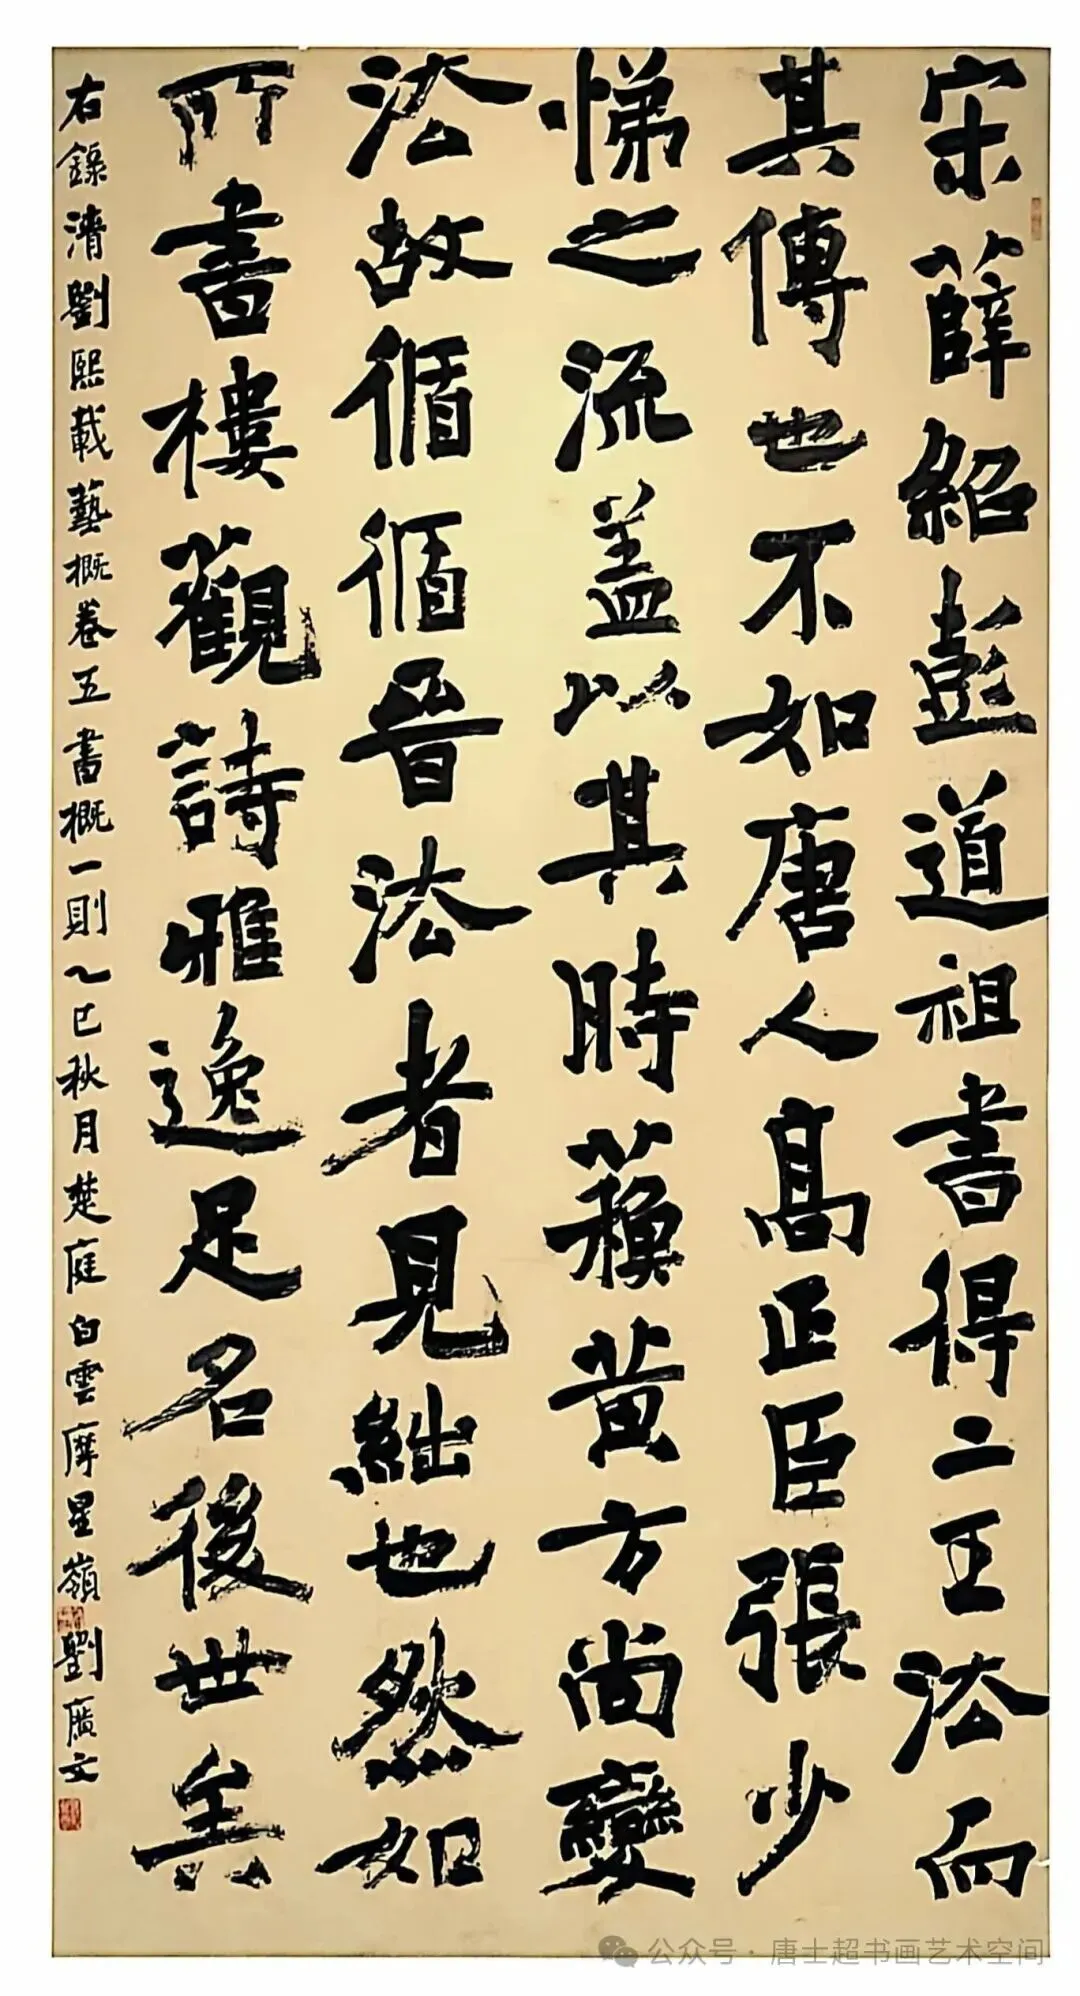 宋薛紹彭道祖書得二王法而
其傳也不如唐人高正臣張少
悌之流蓋以其時蘓黄方尚變
法故循循晉法者見絀也然如
所書樓觀詩雅逸足名後世矣
右錄清劉熙載藝概卷五書概一則乙巳秋月楚庭白雲摩星嶺劉廣文
公众号·唐士超书画艺术空间